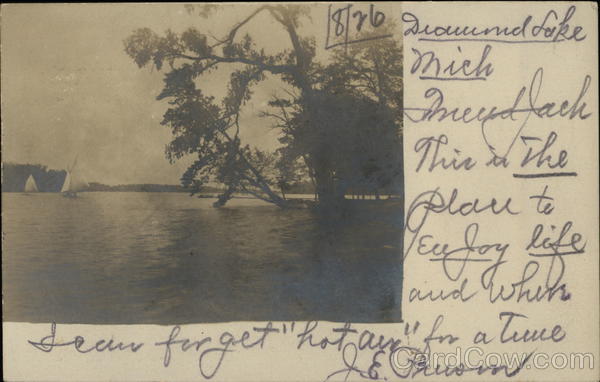 8/26
Diamond Lake
Mich
Friend Jack
This is the
place to
Enjoy life
and where
I can forget "hot air" for a time
J.E.
CardCow.com